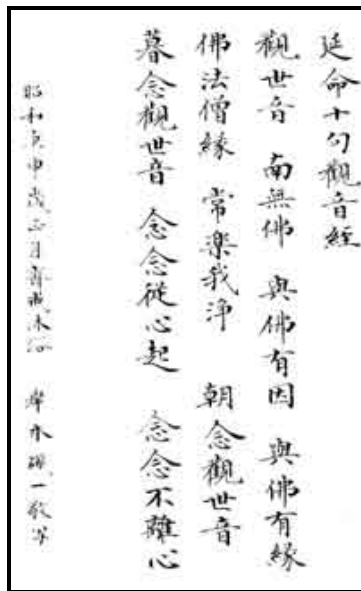 延命十句觀音經
觀世音 南無佛 與佛有因 與佛有緣
佛法僧緣 常楽我浄 朝念觀世音
暮念觀世音 念念從心起 念念不離心
昭和庚申歳正月齋戒沐浴 一敬写